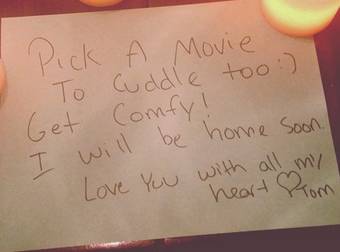 Pick A Movie
To Cuddle too :)
Get Comfy!
I will be home soon.
Love You with all my
heart ♡ Tom